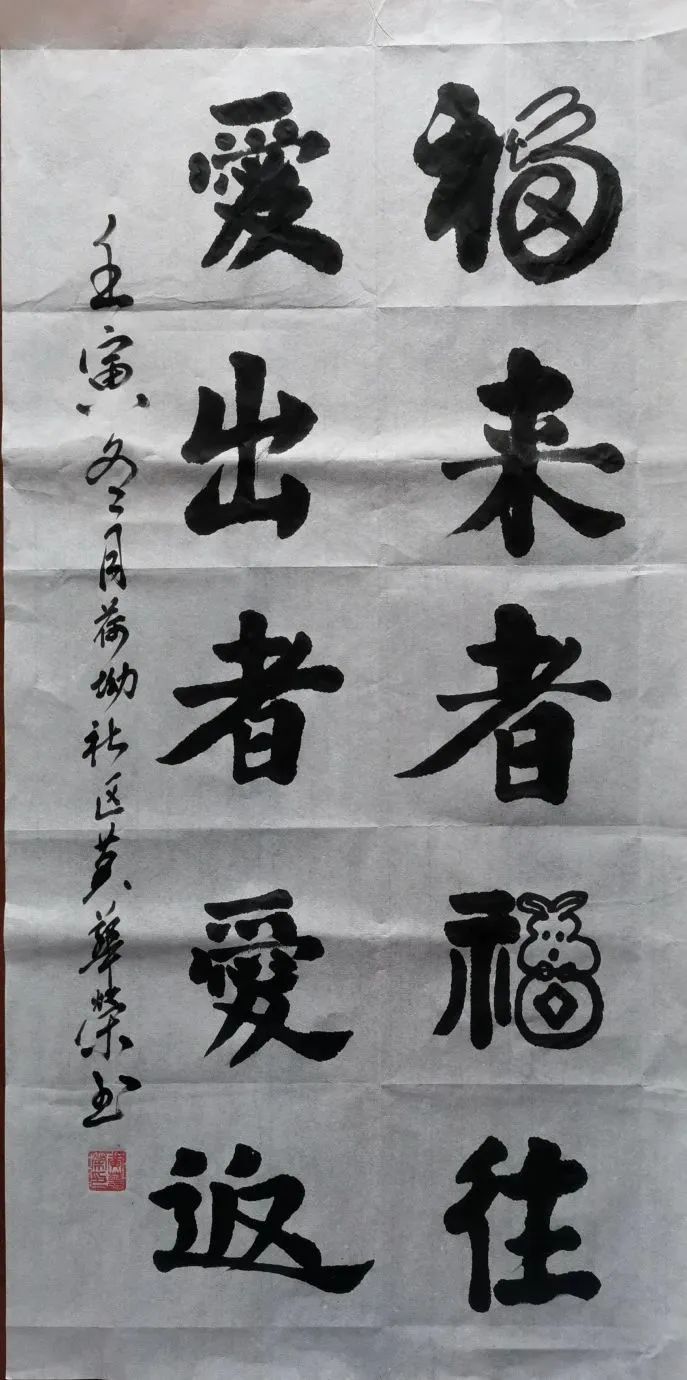 福来者福往
愛出者愛返
壬寅冬月荷坳社区黄華荣书